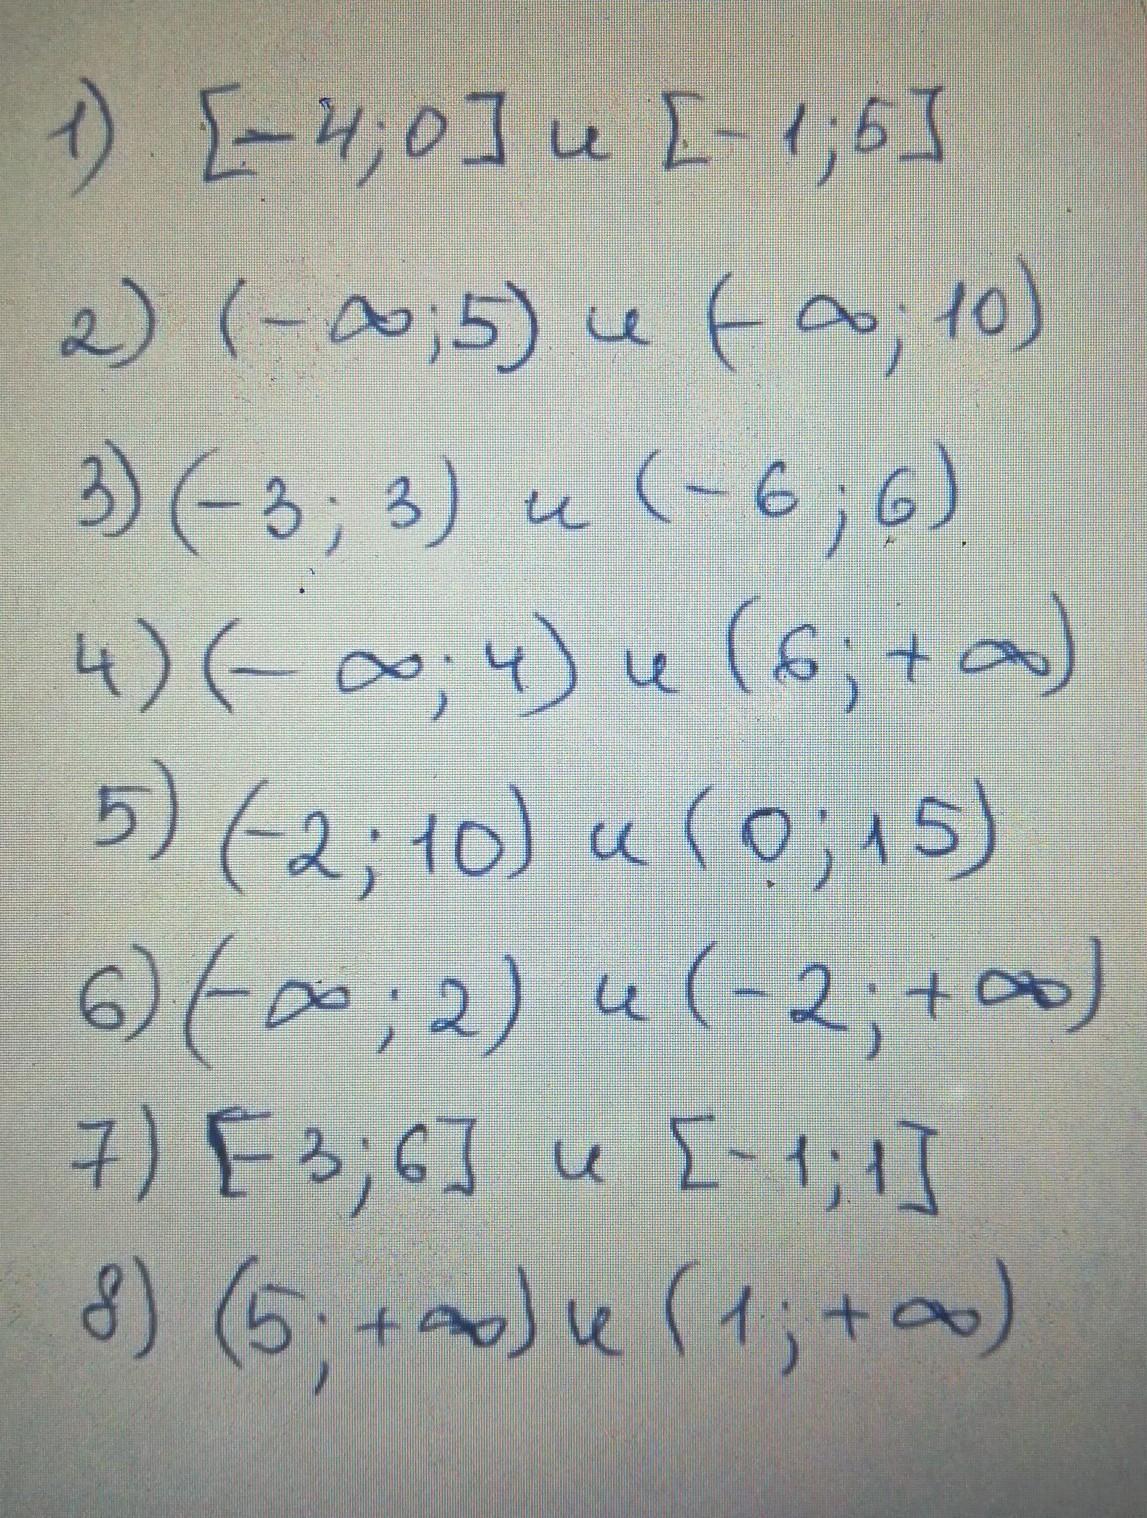 1) [-4;0] и [-1;5]
2) (-∞;5) и (-∞;10)
3) (-3;3) и (-6;6)
4) (-∞;4) и (6;+∞)
5) (-2;10) и (0;15)
6) (-∞;2) и (-2;+∞)
7) [-3;6] и [-1;1]
8) (5;+∞) и (1;+∞)